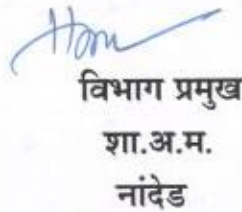 विभाग प्रमुख
शा.अ.म.
नांदेड